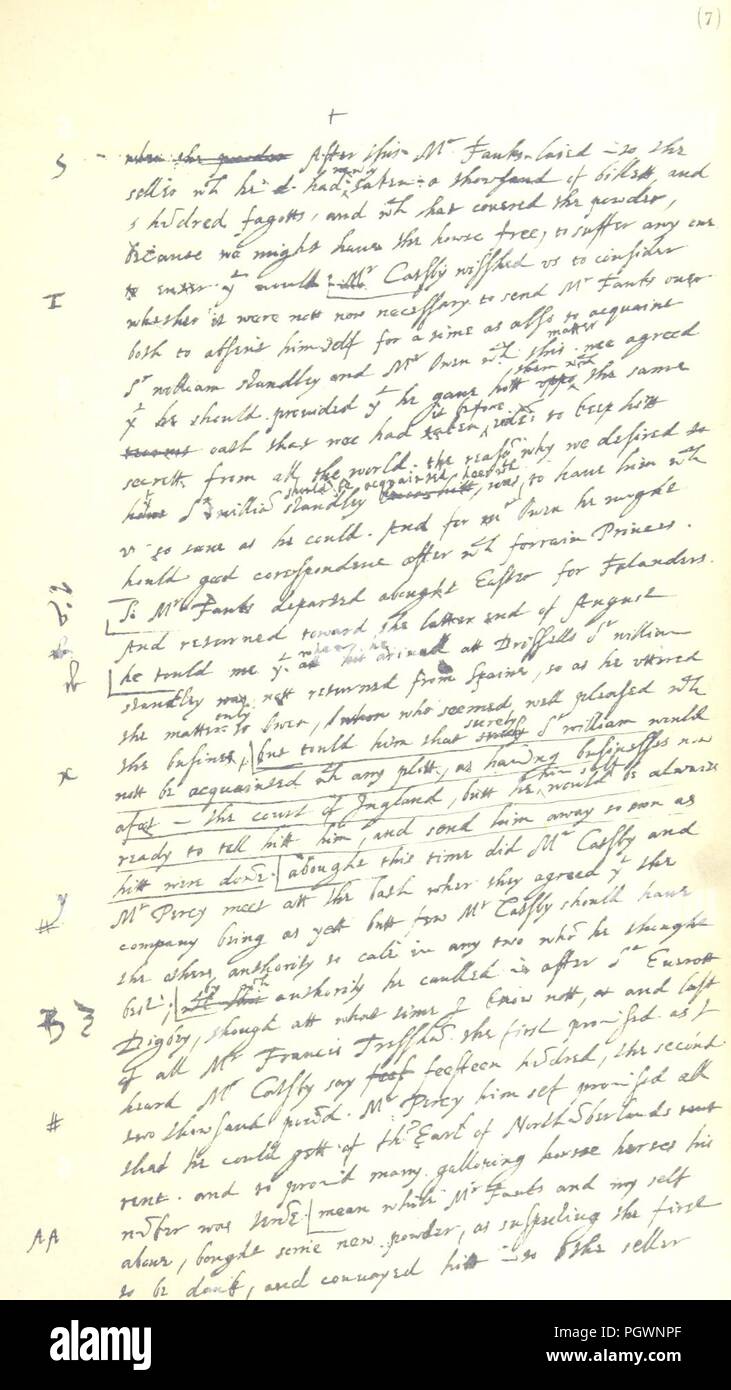 (7)
+
S when the powder After this Mr Fauks laied into the
seller wch he d had newly taken a thousand of billets, and
5 hūdred fagotts, and wth that covered the powder,
because we might haue the house free, to suffer any one
to enter yt would Mr Catsby wisshed vs to consider
I whether it were nott now necessary to send Mr Fauks ouer
both to absent him self for a time as allso to acquaint
Sr william standley and Mr Owen wth this matter. wee agreed
yt he should. provided yt he gaue hitt them wth the same
oath that wee had taken it before, vidz to keep hitt
secrett from all the world. the reasō why we desired
Sr williā standley should be acquainted heerwth was, to haue him wth
vs so sone as he could. And for mr Owen he might
hould good correspondence after wth forrain Princes.
So Mr Fauks departed abought Easter for Flanders
And retorned toward the latter end of August
he tould me yt when he ariued att Brissells Sr william
standley was nott returned from Spaine, so as he vttered
the matter only to Owen, who seemed well pleased wth
the busines, but tould him that surely Sr william would
x nott be acquainted wth any plott, as hauing businesses now
afoot in the court of Ingland, butt he him self would be alwais
ready to tell hitt him, and send him away so soon as
hitt were donē. abought this time did Mr Catsby and
Mr Percy meet att the bath wher they agreed yt the
# y company being as yett butt few Mr Catsby should haue
the others authority to call in any two whō he thought
best; by wch authority he caulled in after Sr Euerott
B Digby, though att what time I know nott, and last
of all Mr Francis Tresshā. the first promised as I
heard Mr Catsby say feefteen hūdred, the second
# two thousand pownd. Mr Percy him self promised all
that he could gett of the Earl of Northūberlands rent
rent. and to provid many galloping horses his
nūber was tenē. mean while Mr Fauks and my self
AA alone, bought some new powder, as suspecting the first
to be dank, and conuayed hitt into the seller
alamy stock photo
a
alamy
Image ID: PGWNPF
www.alamy.com